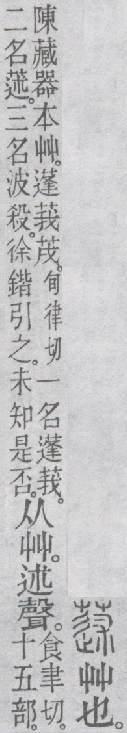 蒁艸也。
陳藏器本艸。蓬莪茂。旬律切一名蓬莪。
二名蒁。三名波殺。徐鍇引之。未知是否。
从艸。述聲。
食聿切。
十五部。